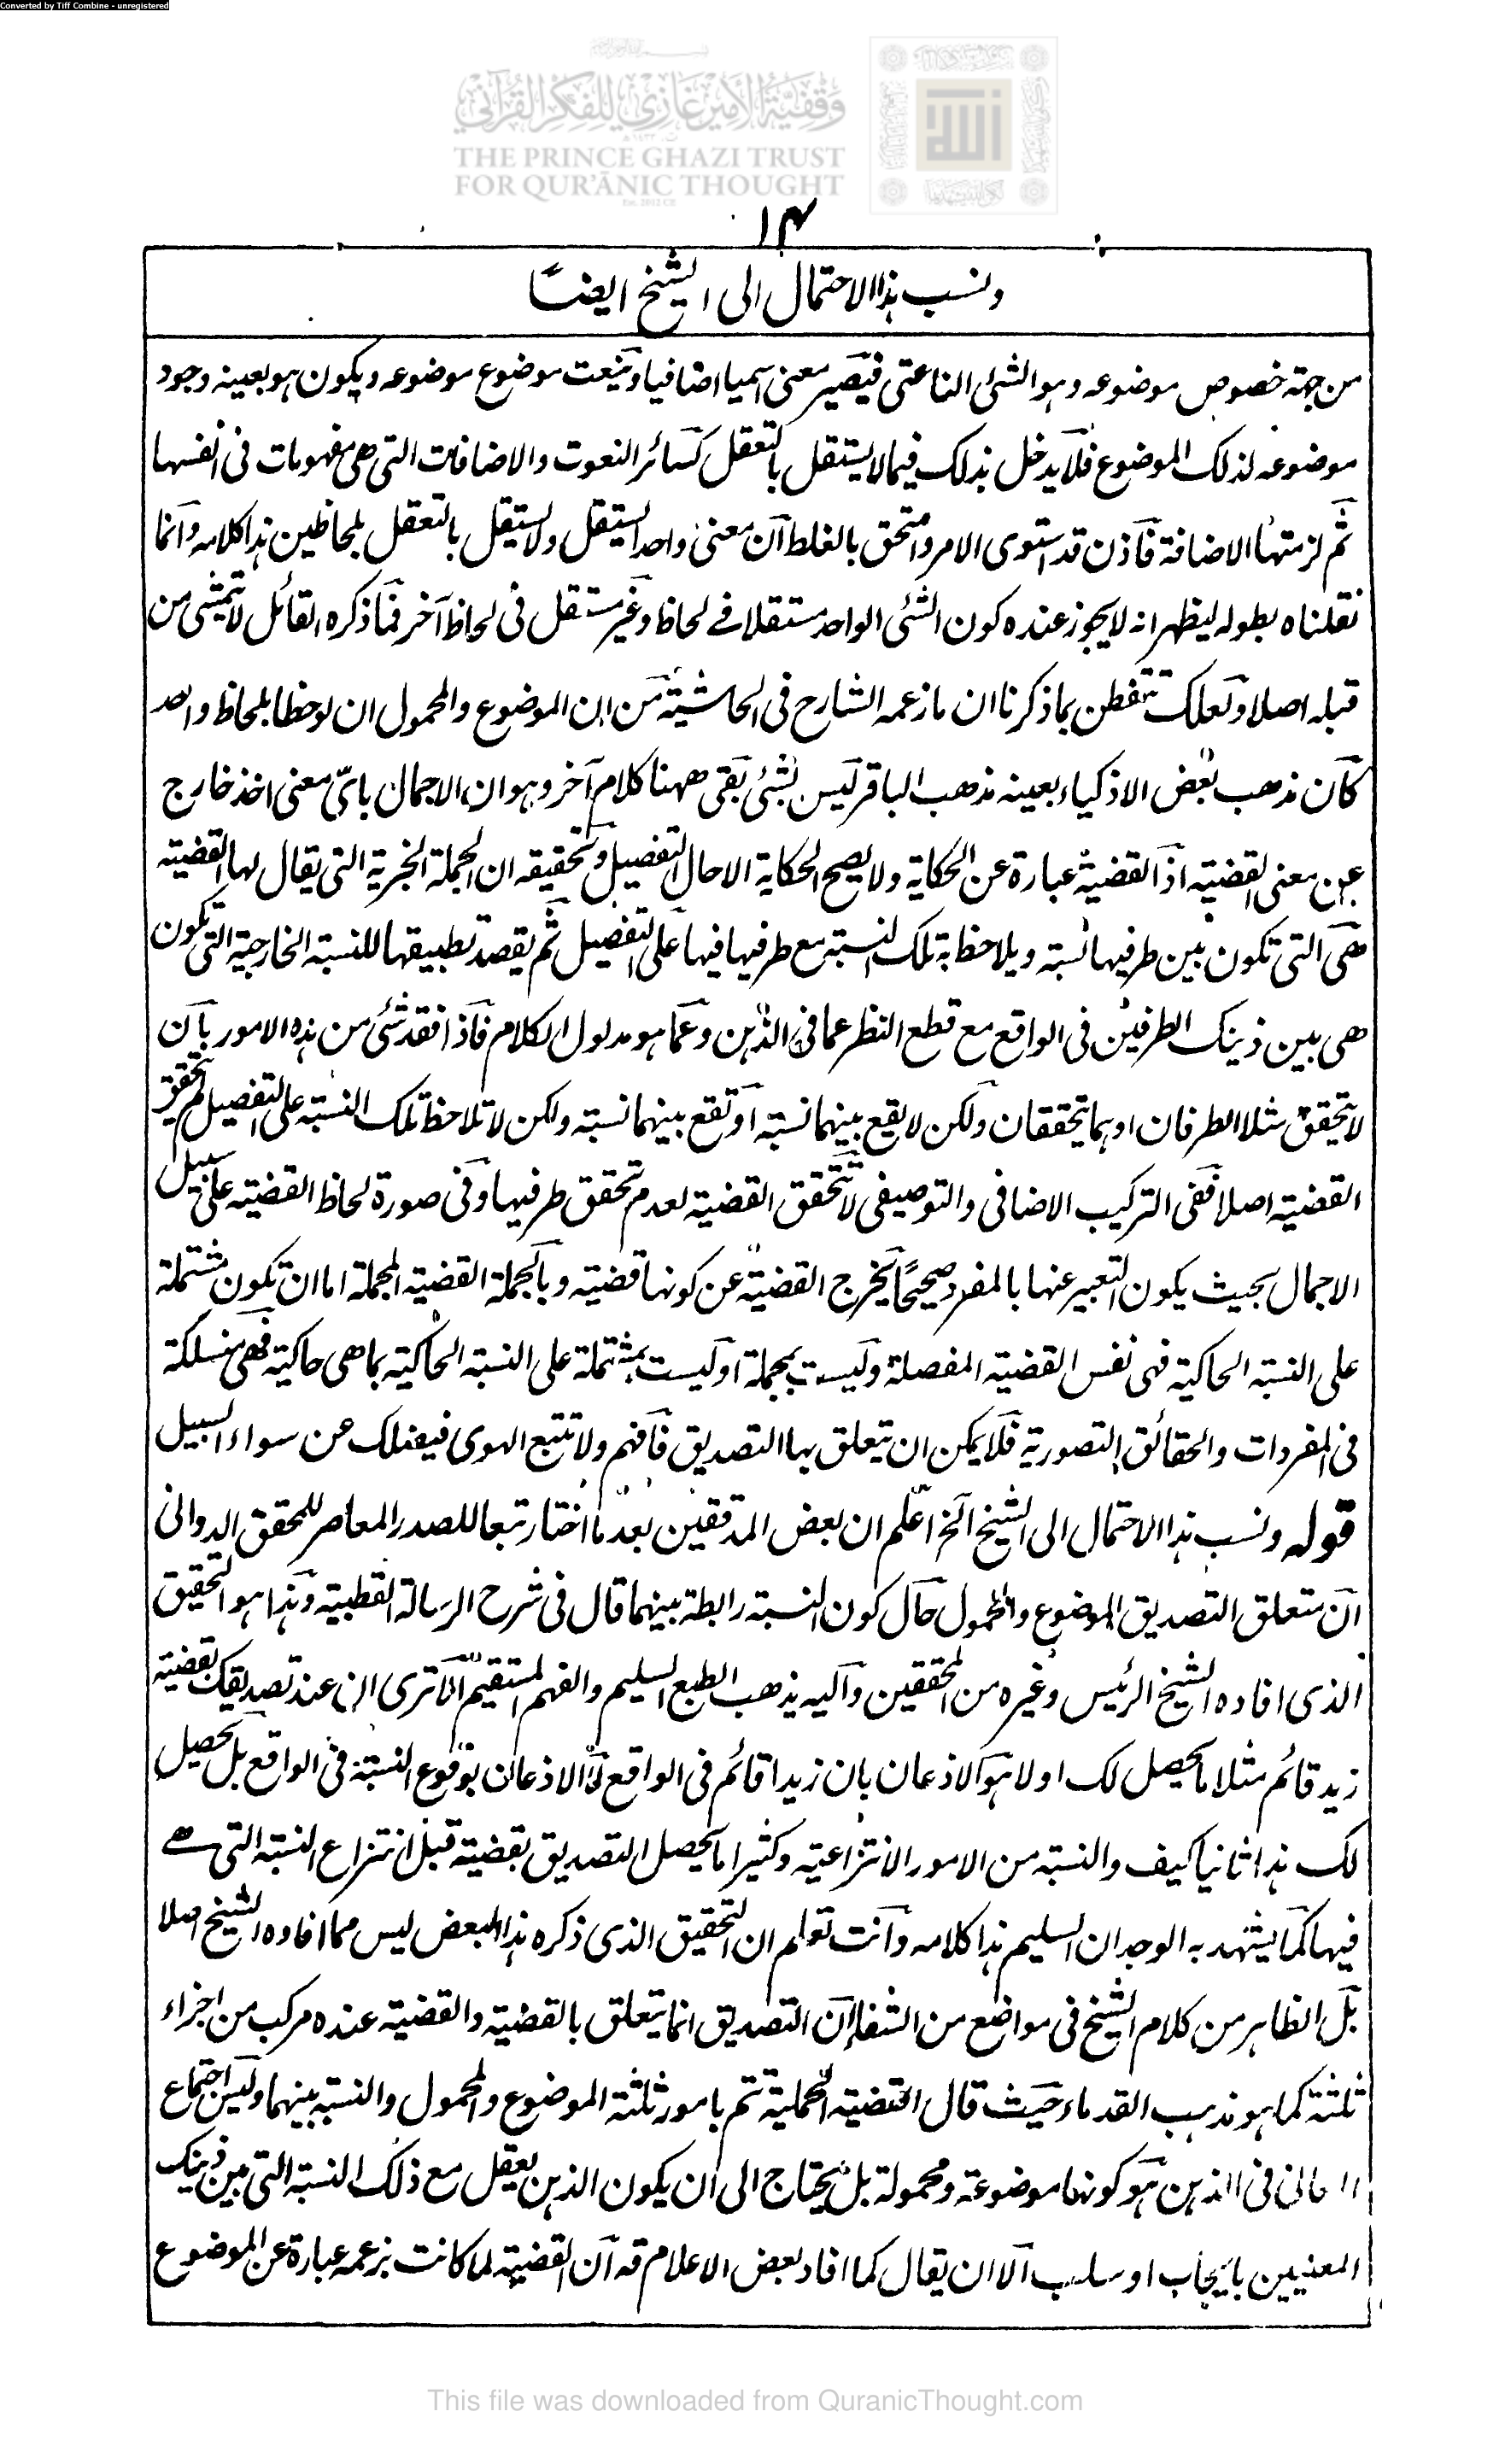 Converted by Tiff Combine - unregistered
وقفية الأمير غازي للفكر القرآني
THE PRINCE GHAZI TRUST
FOR QUR'ĀNIC THOUGHT
Est. 2012 CE
١٤
ونسب هذا الاحتمال الى الشيخ ايضًا
من جهة خصوص موضوعه وهو الشئ الناعتى فيصير معنى اسميا اضافيا وينعت موضوع موضوعه ويكون هو بعينه وجود
موضوعه لذلك الموضوع فلا يدخل بذلك فيما لا يستقل بالتعقل كسائر النعوت والاضافات التى هى مفهومات فى انفسها
ثم لزمتها الاضافة فاذن قد استوى الامر وامتحق بالغلط ان معنى واحد ايستقل ولا يستقل بالتعقل بلحاظين هذا كلامه وانما
نقلناه بطوله ليظهر انه لا يجوز عنده كون الشئ الواحد مستقلا فے لحاظ وغير مستقل فى لحاظ آخر فما ذكره القائل لا يتمشى من
قبله اصلا ولعلك تتفطن بما ذكرنا ان ما زعمه الشارح فى الحاشية من ان الموضوع والمحمول ان لوحظا بلحاظ واحد
كان مذهب بعض الاذكياء بعينه مذهب الباقر ليس بشئ بقى ههنا كلام آخر وهو ان الاجمال باىّ معنى اخذ خارج
عن معنى القضية اذ القضية عبارة عن الحكاية ولا يصح الحكاية الا حال التفصيل وتحقيقه ان الجملة الخبرية التى يقال لها القضية
هى التى تكون بين طرفيها نسبة ويلاحظ به تلك النسبة مع طرفيها فيها على التفصيل ثم يقصد تطبيقها للنسبة الخارجية التى تكون
هى بين ذينك الطرفين فى الواقع مع قطع النظر عما فى الذهن وعما هو مدلول الكلام فاذا فقد شئ من هذه الامور بان
لا يتحقق مثلا الطرفان او هما يتحققان ولكن لا يقع بينهما نسبة او تقع بينهما نسبة ولكن لا تلاحظ تلك النسبة على التفصيل لم يتحقق
القضية اصلا ففى التركيب الاضافى والتوصيفى لا تتحقق القضية لعدم تحقق طرفيها وفى صورة لحاظ القضية على سبيل
الاجمال بحيث يكون التعبير عنها بالمفرد صحيحًا يخرج القضية عن كونها قضية وبالجملة القضية المجملة اما ان تكون مشتملة
على النسبة الحاكية فهى نفس القضية المفصلة وليست بمجملة او ليست بمشتملة على النسبة الحاكية بما هى حاكية فهى منسلكة
فى المفردات والحقائق التصورية فلا يمكن ان يتعلق بها التصديق فافهم ولا تتبع الهوى فيضلك عن سواء السبيل
قوله ونسب هذا الاحتمال الى الشيخ آلخ اعلم ان بعض المدققين بعد ما اختار تبعا للصدر المعاصر للمحقق الدوانى
ان متعلق التصديق الموضوع والمحمول حال كون النسبة رابطة بينهما قال فى شرح الرسالة القطبية وهذا هو التحقيق
الذى افاده الشيخ الرئيس وغيره من المحققين واليه يذهب الطبع السليم والفهم المستقيم الا ترى ان عند تصديقك بقضية
زيد قائم مثلا ما يحصل لك اولا هو الاذعان بان زيدا قائم فى الواقع لا الاذعان بوقوع النسبة فى الواقع بل يحصل
لك هذا ثانيا كيف والنسبة من الامور الانتزاعية وكثيرا ما يحصل التصديق بقضية قبل انتزاع النسبة التى هے
فيها كما يشهد به الوجدان السليم هذا كلامه وانت تعلم ان التحقيق الذى ذكره هذا البعض ليس مما افاده الشيخ اصلا
بل الظاهر من كلام الشيخ فى مواضع من الشفاء ان التصديق انما يتعلق بالقضية والقضية عنده مركب من اجزاء
ثلثة كما هو مذهب القدماء حيث قال القضية الحملية تتم بامور ثلثة الموضوع والمحمول والنسبة بينهما وليس اجتماع
المعانى فى الذهن هو كونها موضوعة ومحمولة بل يحتاج الى ان يكون الذهن يعقل مع ذلك النسبة التى بين ذينك
المعنيين بايجاب او سلب الا ان يقال كما افاد بعض الاعلام قه ان القضية لما كانت بزعمه عبارة عن الموضوع
This file was downloaded from QuranicThought.com